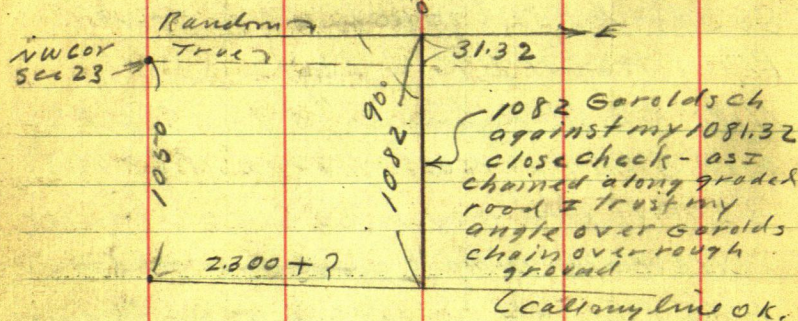 Random
True
NW Cor
Sec 23
E
31.32
90°
1050
1082
2300 + ?
1082 Garolds ch
against my 1081.32
close check - as I
chained along graded
road I trust my
angle over Garolds
chain over rough
ground
(call my line OK.